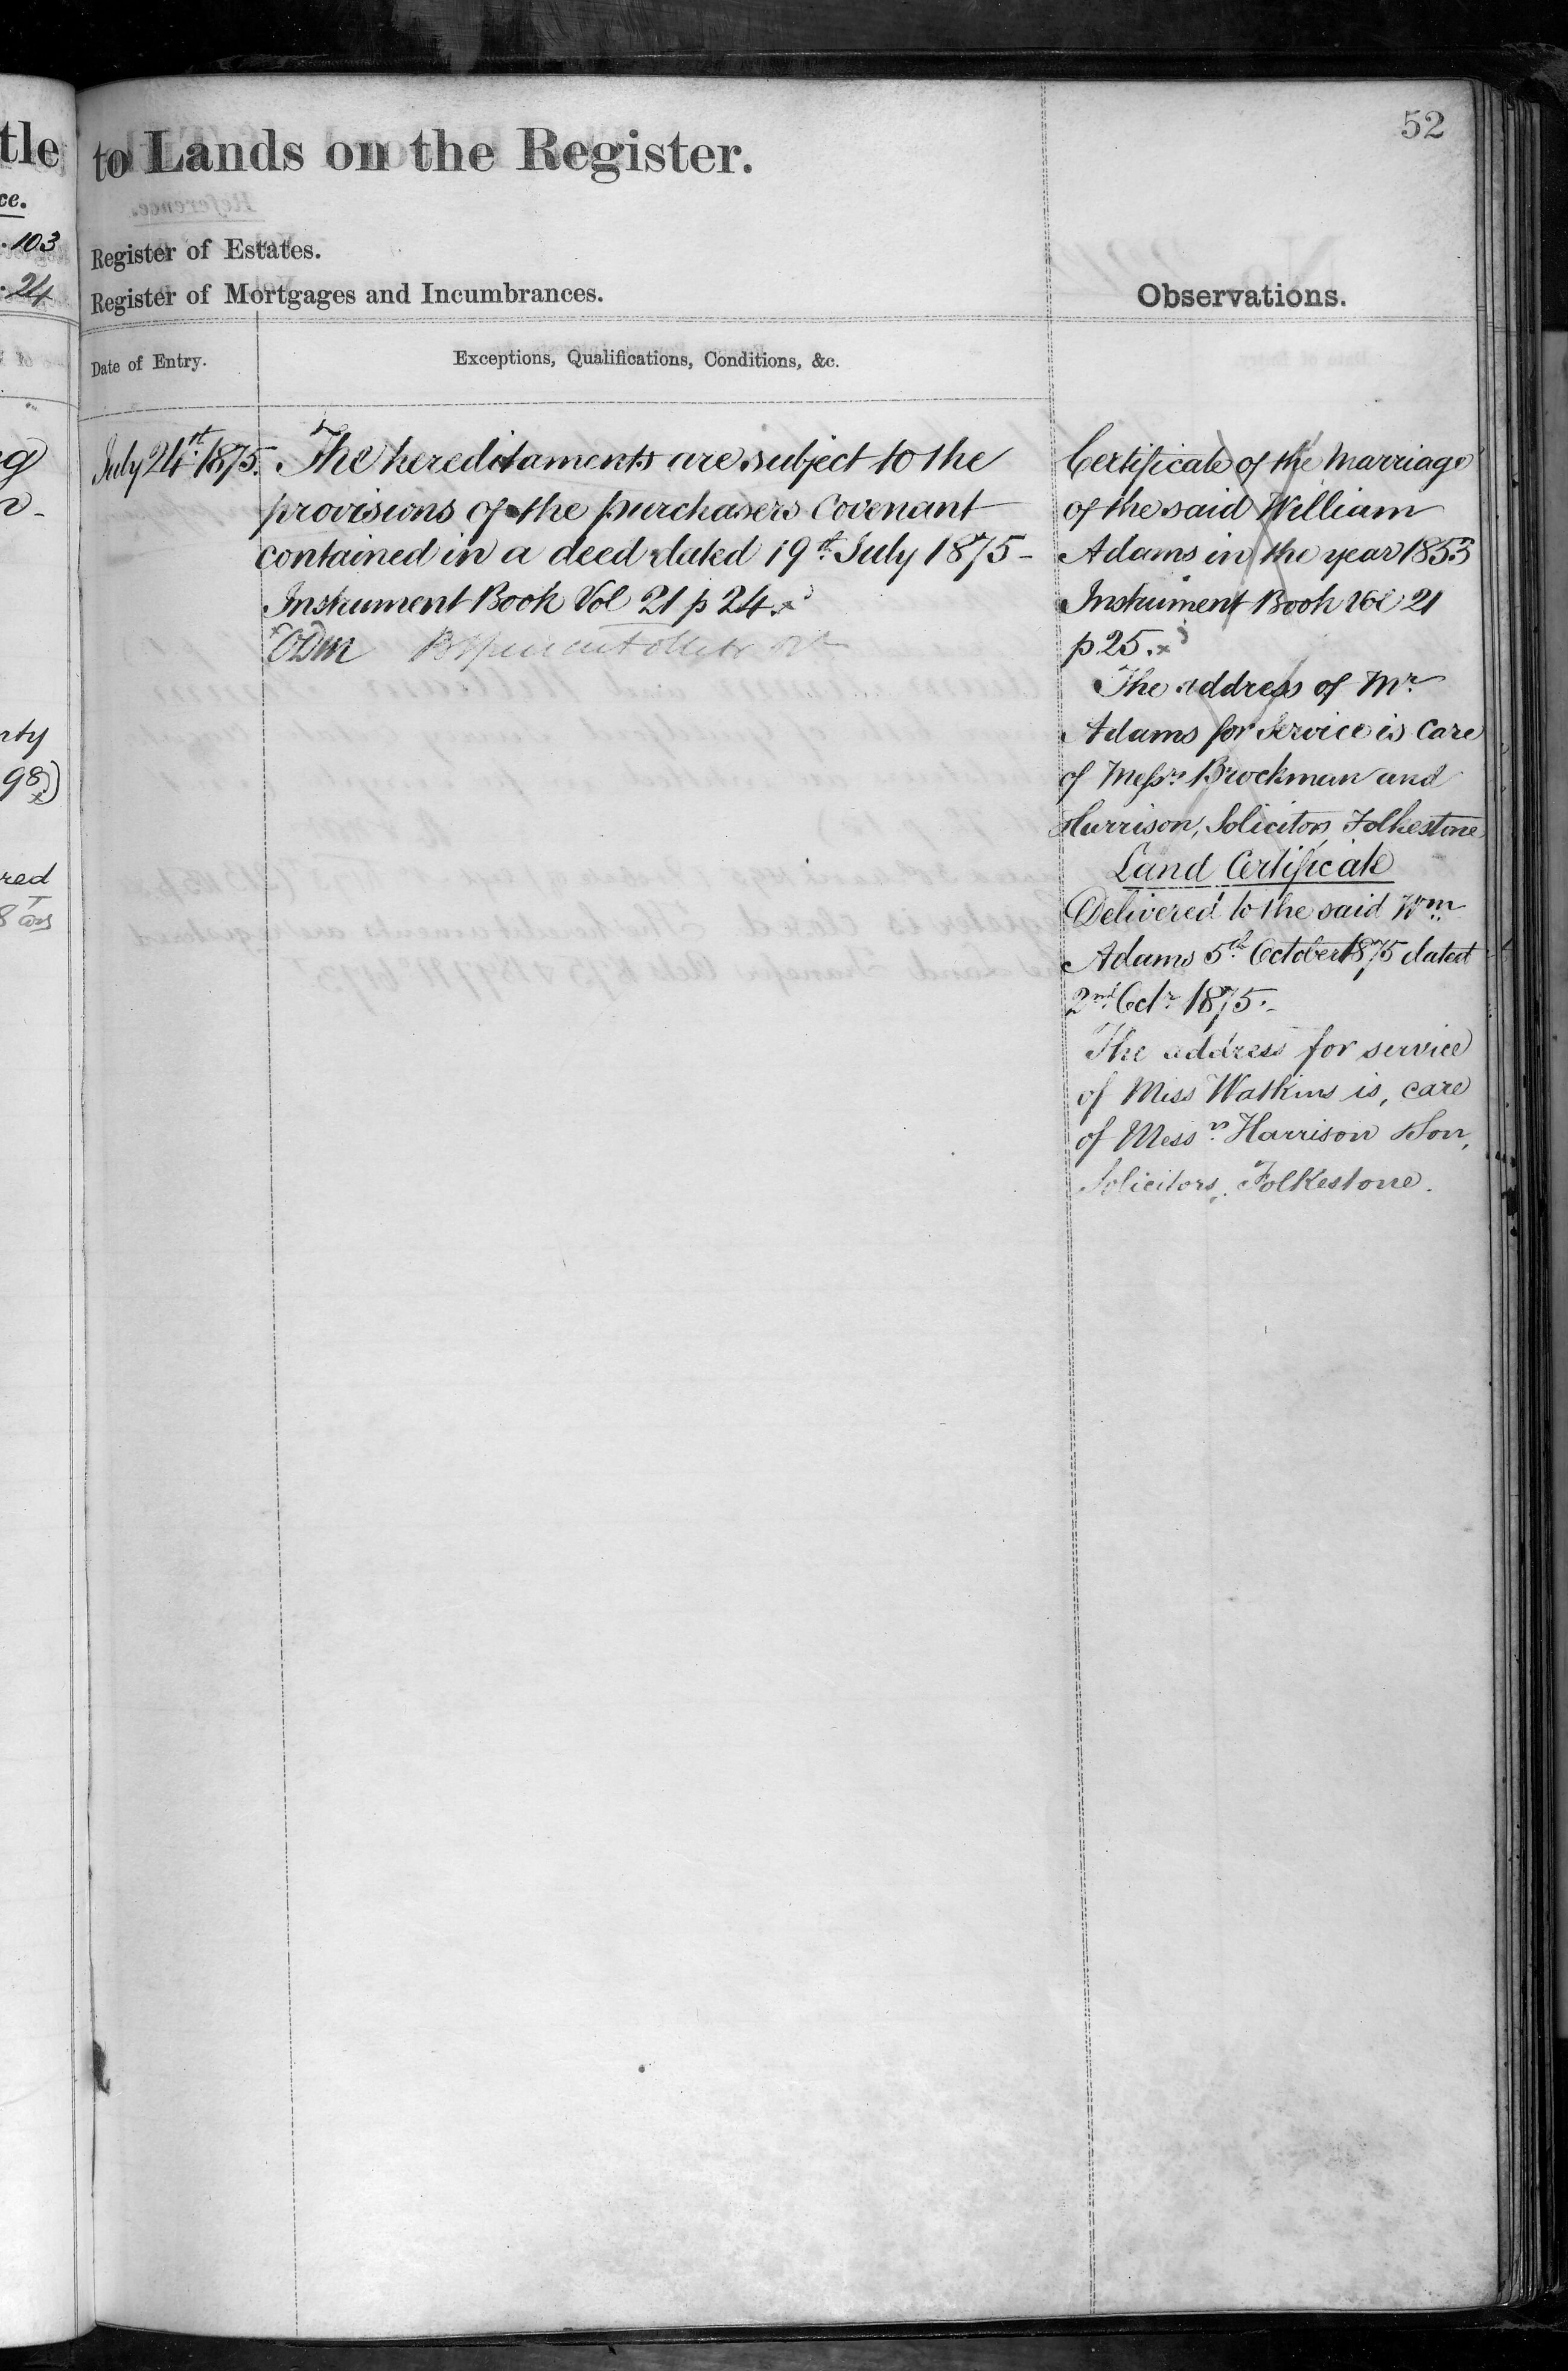 tle
ce.
. 103
. 24
rty
98)
red
52
to Lands on the Register.
Register of Estates.
Register of Mortgages and Incumbrances.
Observations.
Date of Entry.
Exceptions, Qualifications, Conditions, &c.
July 24st 1875.
The hereditaments are subject to the
provisions of the purchasers Covenant
contained in a deed dated 19th July 1875 -
Instrument Book Vol 21 p 24. x
Certificate of the Marriage
of the said William
Adams in the year 1853
Instrument Book Vol 21
p 25. x
The address of Mr
Adams for Service is Care
of Messrs Brockman and
Harrison, Solicitors Folkestone
Land Certificate
Delivered to the said Wm
Adams 5th October 1875 dated
2nd Octr 1875.-
The address for service
of Miss Watkins is, care
of Messrs Harrison & Son,
Solicitors, Folkestone.